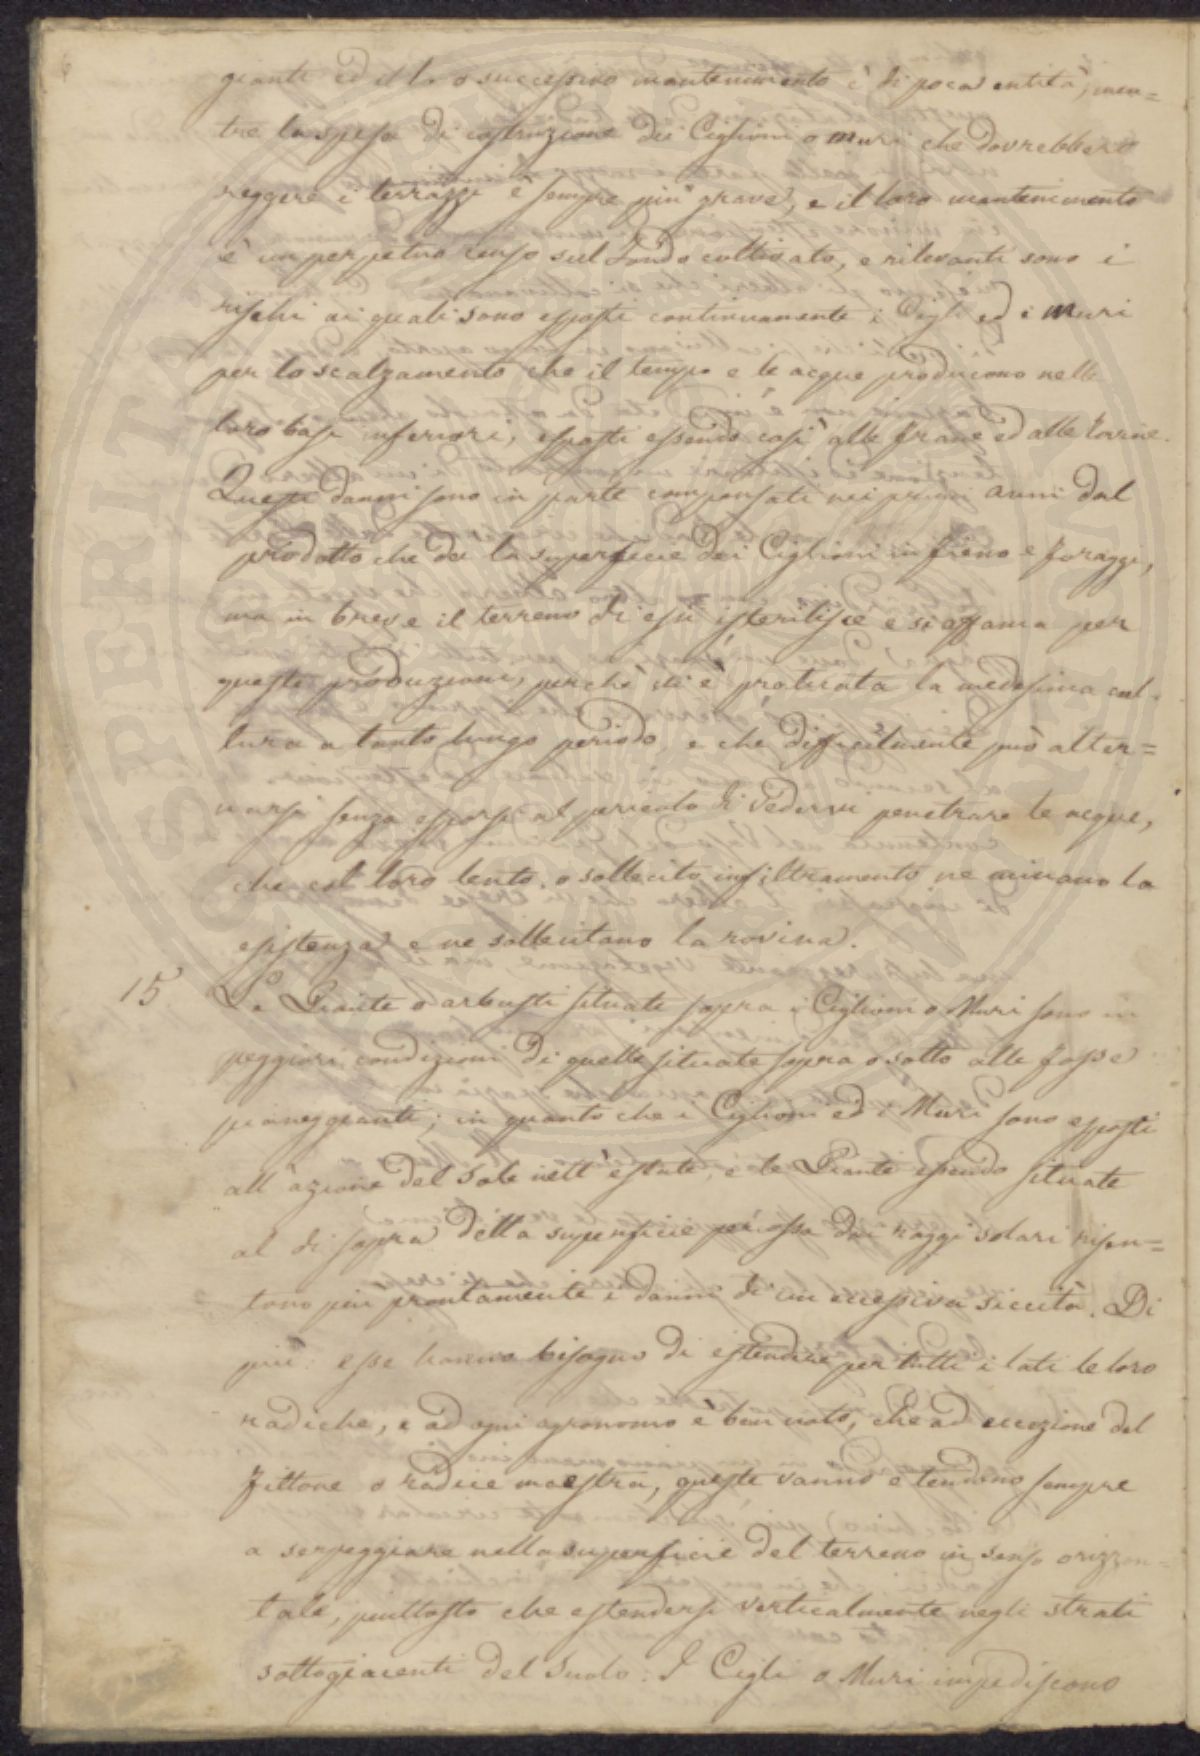 gianti ed il lo o successivo mantenimento è di poca entità, men=
tre la spesa di costruzione dei Ciglioni o muri che dovrebbero
reggere i terrazzi è sempre più grave, e il loro mantenimento
è un perpetuo censo sul Fondo coltivato, e rilevanti sono i
rischi ai quali sono esposti continuamente i Cigli ed i Muri
per lo scalzamento che il tempo e le acque producono nelle
loro basi inferiori, esposti essendo così alle frane ed alle rovine.
Questi danni sono in parte compensati nei primi anni dal
prodotto che dà la superficie dei Ciglioni in fieno e foraggi,
ma in breve il terreno di essi isterilisce e si affama per
queste produzioni, perchè vi è protratta la medesima col=
tura a tanto lungo periodo, e che difficilmente può alter=
narsi senza esporsi al pericolo di vedervi penetrare le acque,
che col loro lento, o sollecito infiltramento ne minano la
esistenza e ne sollecitano la rovina.
15 Le Piante o arbusti situate sopra i Ciglioni o Muri sono in
peggiori condizioni di quelle situate sopra o sotto alle fosse
pianeggianti; in quanto che i Ciglioni ed i Muri sono esposti
all'azione del Sole nell'estate, e le Piante essendo situate
al di sopra della superficie percossa dai raggi solari risen=
tono più prontamente i danni di un eccessiva siccità. Di
più: esse hanno bisogno di estendere per tutti i lati le loro
radiche, e ad ogni agronomo è ben noto, che ad eccezione del
fittone o radice maestra, queste vanno e tendono sempre
a serpeggiare nella superficie del terreno in senso orizzon=
tale, piuttosto che estendersi verticalmente negli strati
sottogiacenti del Suolo. I Cigli o Muri impediscono